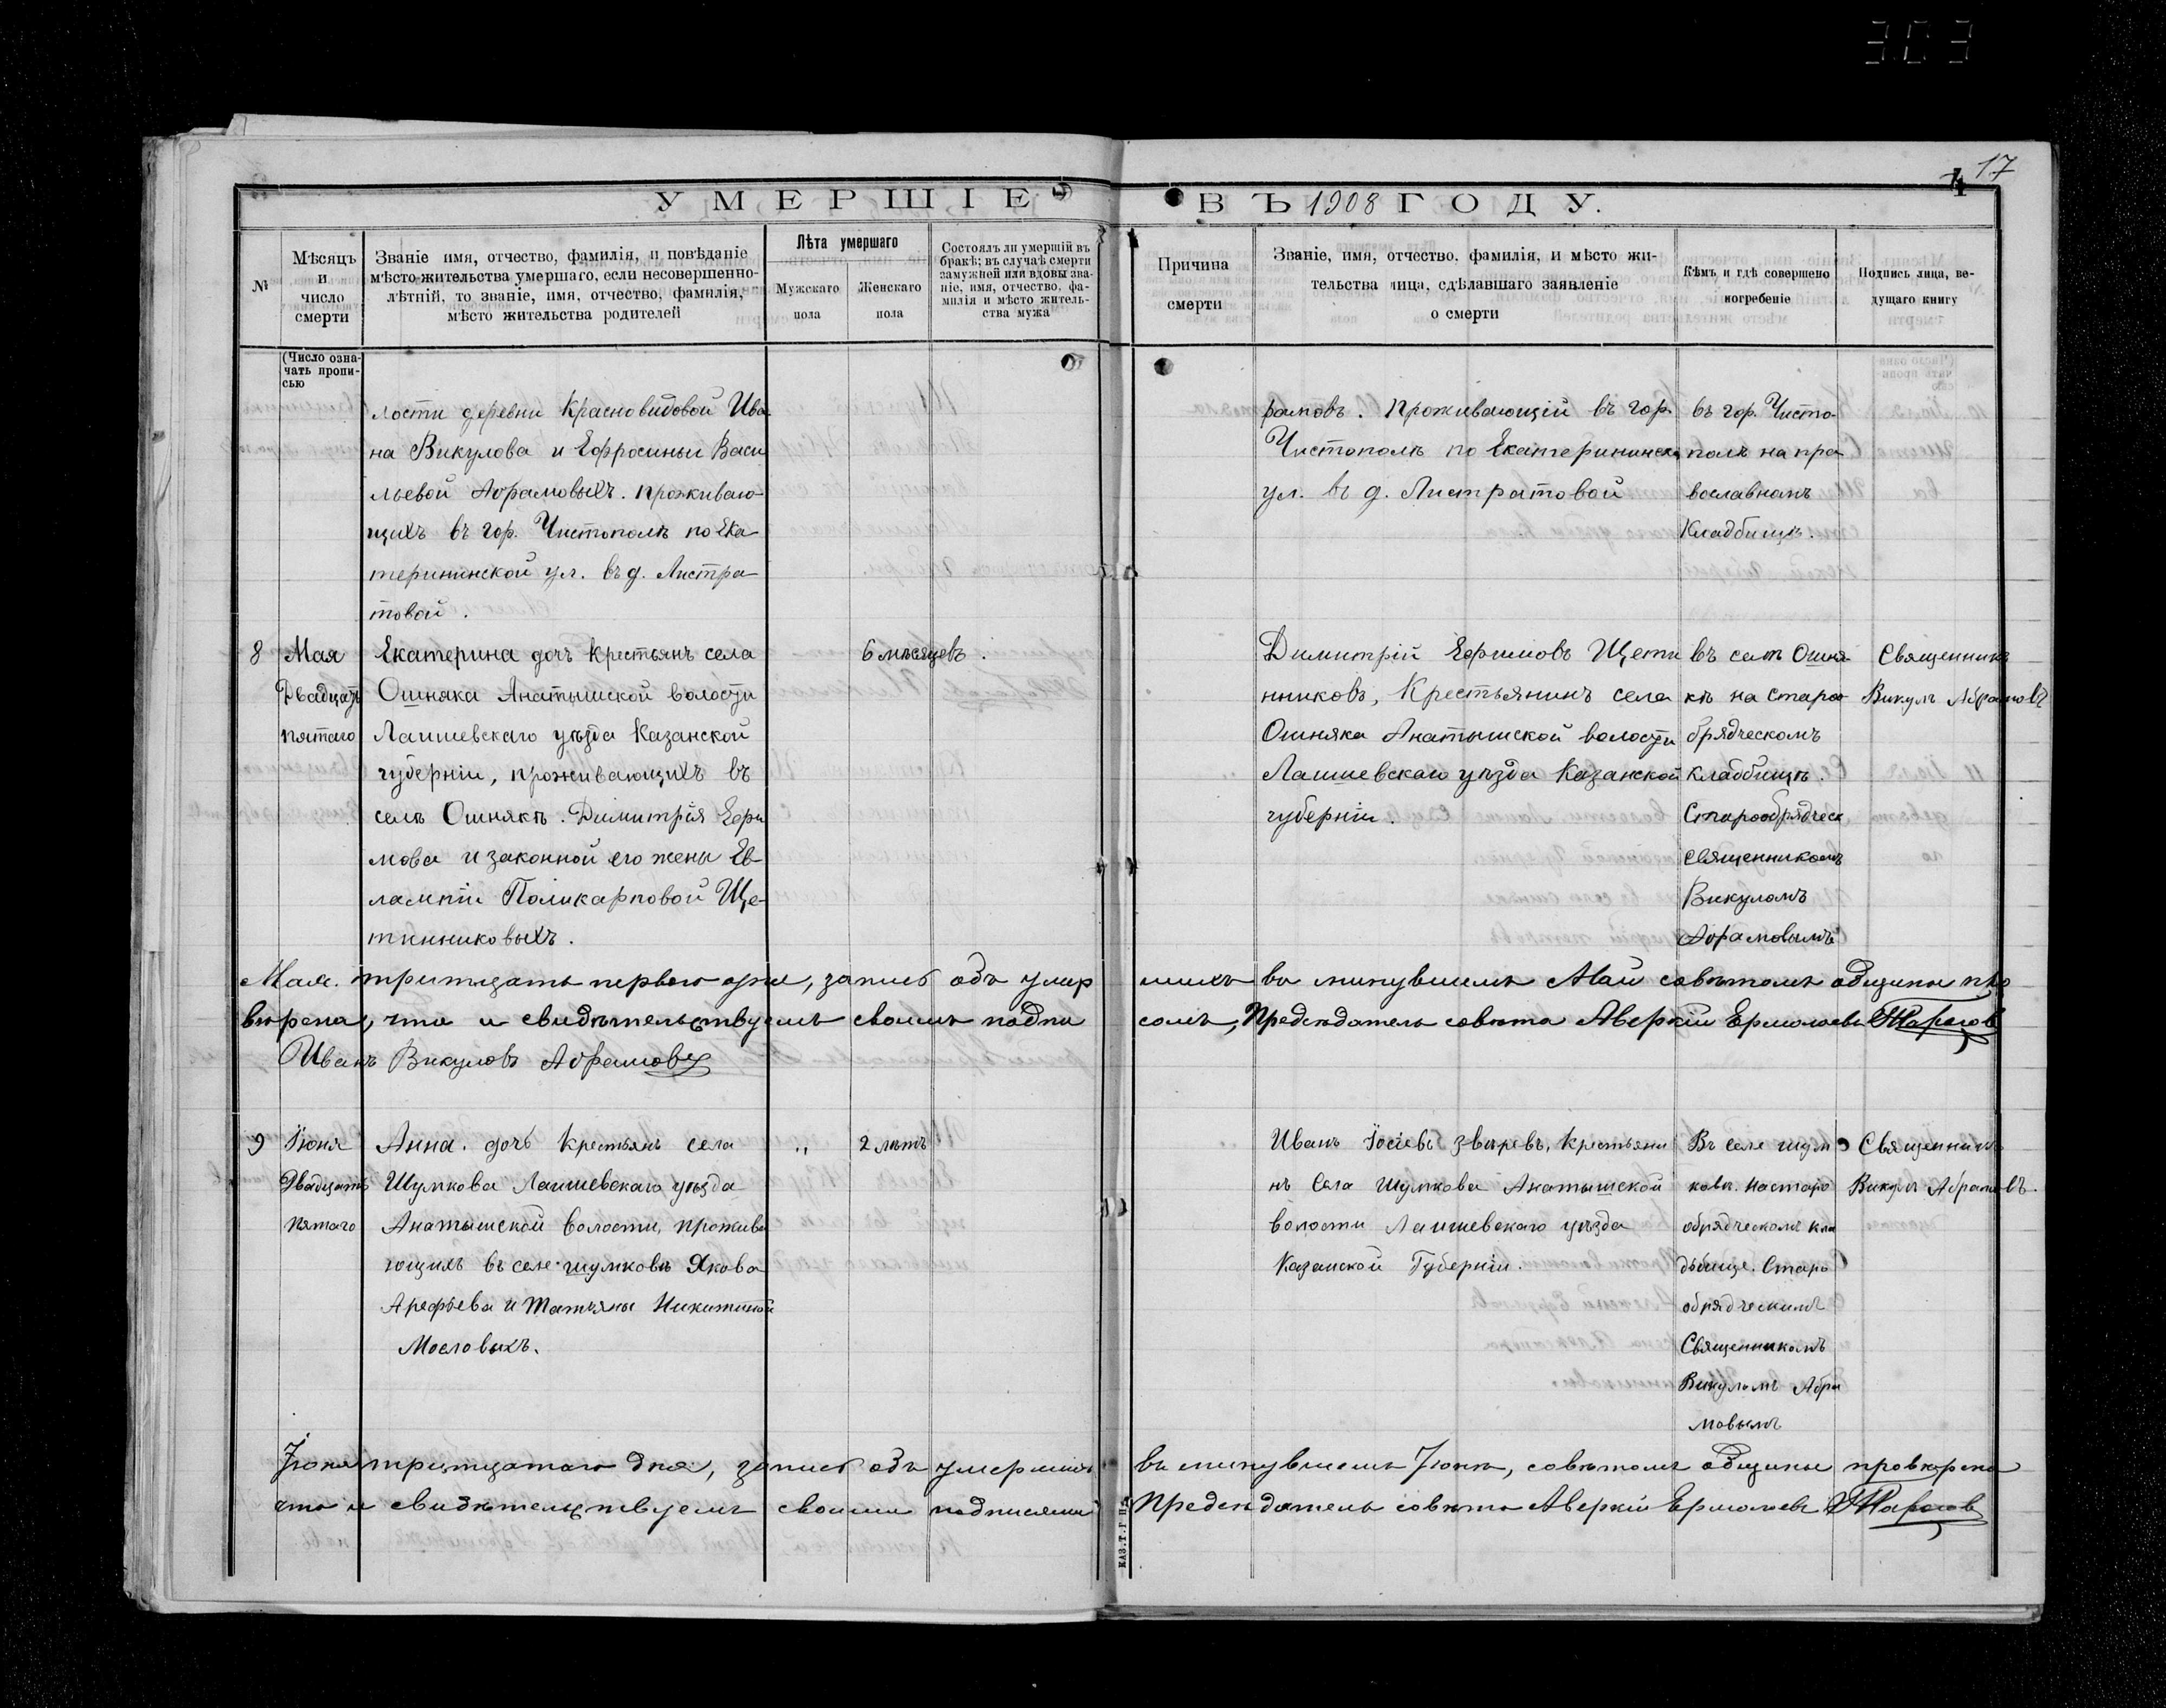 303
17
УМЕРШІЕ
ВЪ 1908 ГОДУ.
№
Мѣсяцъ и число смерти
Званіе имя, отчество, фамилія, и повѣданіе
мѣсто жительства умершаго, если несовершенно-
лѣтній, то званіе, имя, отчество, фамилія,
мѣсто жительства родителей
Лѣта умершаго
Мужскаго пола
Женскаго пола
Состоялъ ли умершій въ
бракѣ; въ случаѣ смерти
замужней или вдовы зва-
ніе, имя, отчество, фа-
милія и мѣсто житель-
ства мужа
Причина смерти
Званіе, имя, отчество, фамилія, и мѣсто жи-
тельства лица, сдѣлавшаго заявленіе
о смерти
Кѣмъ и гдѣ совершено
погребеніе
Подпись лица, ве-
дущаго книгу
(Число озна-
чать пропи-
сью
лости деревни Красновидовой Ива
на Викулова и Ефросиньи Васи
льевой Абрамовыхъ. проживаю-
щихъ въ гор. Чистополѣ по Ека-
терининской ул. въ д. Листра-
товой.
рамовъ. Проживающій въ гор.
Чистополѣ по Екатерининска
ул. въ д. Листратовой
въ гор. Чисто-
полѣ на пра-
вославномъ
Кладбищѣ.
8
Мая
Двадцать
пятаго
Екатерина дочъ крестьянъ села
Ошняка Анатышской волости
Лаишевскаго уѣзда Казанской
губерніи, проживающихъ въ
селѣ Ошнякѣ. Димитрія Ефи
мова и законной его жены Ев-
лампіи Поликарповой Ще-
тинниковыхъ.
6 мѣсяцевъ.
Димитрій Ефимовъ Щети
нниковъ, Крестьянинъ села
Ошняка Анатышской волости
Лаишевскаго уѣзда Казанской
губерніи.
въ селѣ Ошня-
кѣ на старо
брядческомъ
кладбищѣ.
Старообрядческ
священникомъ
Викуломъ
Абрамовымъ
Священникъ
Викулъ Абрамовъ
Мая. тритцать первого дня, запись объ умер
шихъ въ минувшемъ Маи совѣтомъ общины про
вѣрена, что и свидѣтельствуемъ своимъ подпи
сомъ, Предсѣдатель совѣта Аверкій Ермолаевъ Тарасов
Иванъ Викуловъ Абрамовъ
9
Іюня
Двадцать
пятаго
Анна. дочь крестьянъ села
Шумкова Лаишевскаго уѣзда
Анатышской волости, прожива
ющихъ въ селе шумковѣ Якова
Арефьева и Татьяны Никитиной
Масловыхъ.
"
2 лѣтъ
Иванъ Іосіевъ звѣревъ, крестьяни
нъ Села Шумкова Анатышской
волости Лаишевскаго уѣзда
Казанской Губерніи.
Въ селе шум
ковѣ. настаро
обрядческомъ кла
дьбище. Старо
обрядческимъ
Священникомъ
Викуломъ Абра
мовымъ
Священникъ
Викулъ Абрамовъ.
Іюня тритцатаго дня, запись объ умерших
въ минувшемъ Іюнѣ, совѣтомъ общины провѣрена
что и свидѣтельствуемъ своими подписями
Предсѣдатель совѣта Аверкій Ермолаевъ Тарасов
КАЗ. Т. Г П.